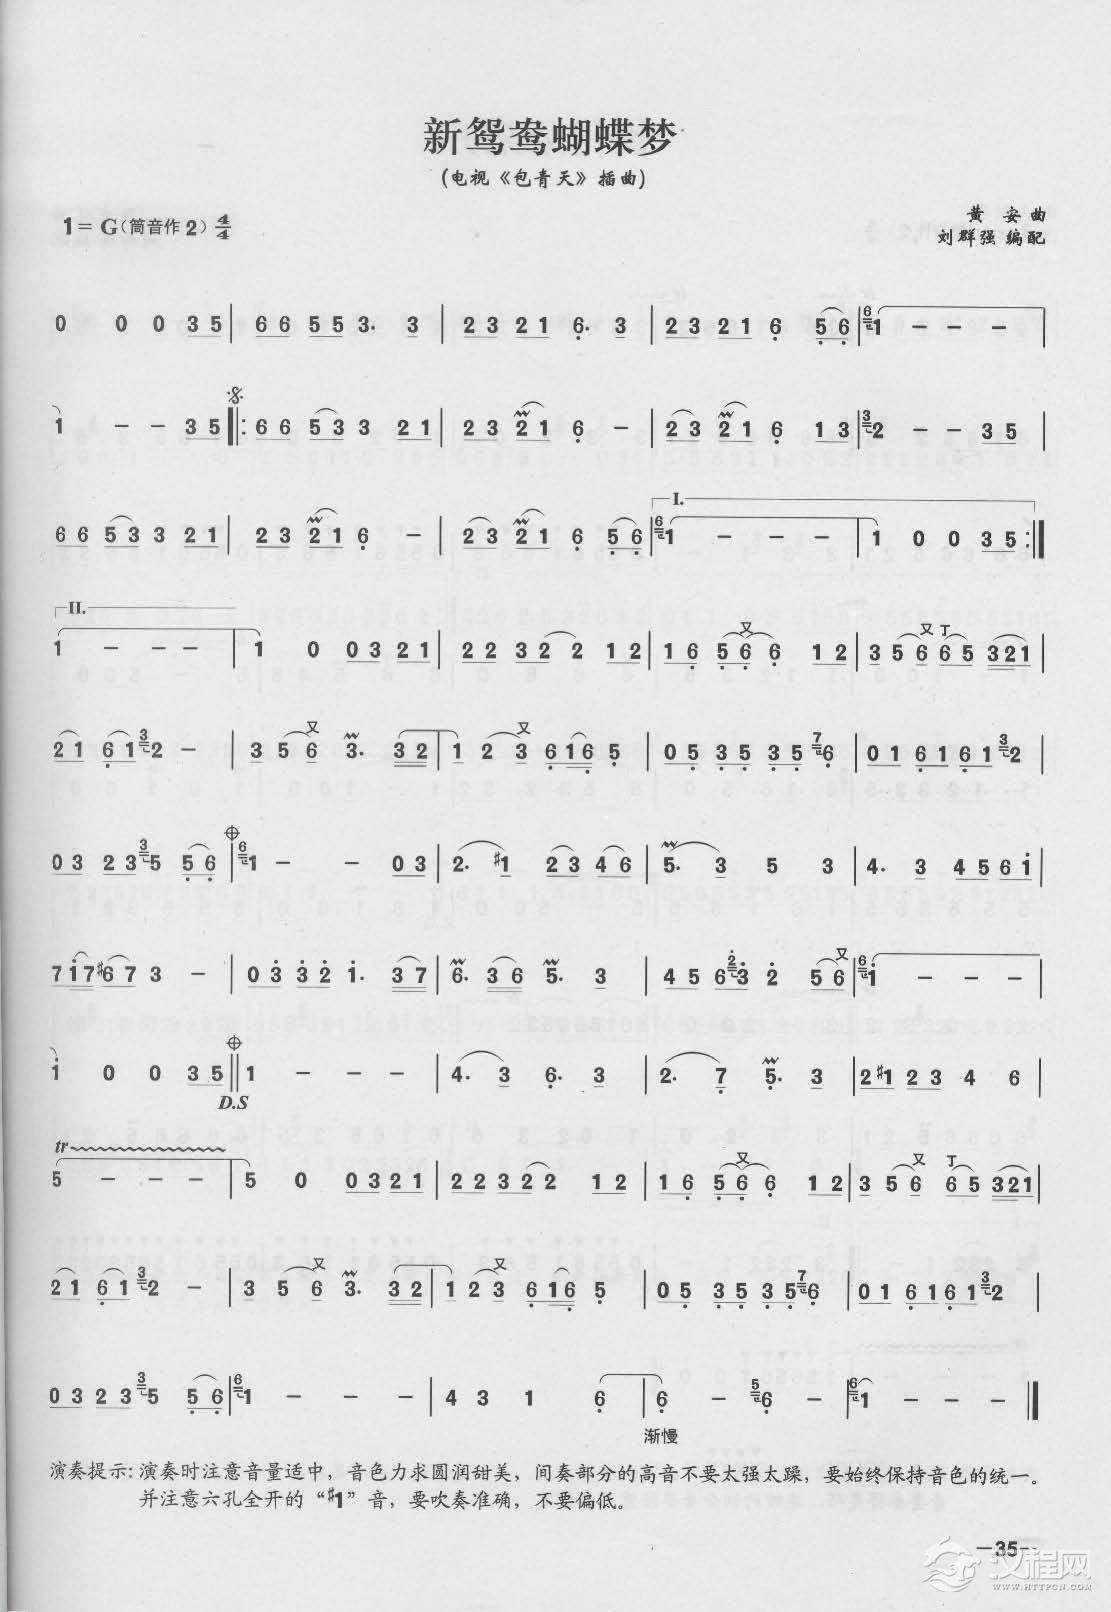 新鸳鸯蝴蝶梦
(电视《包青天》插曲)
1= G(筒音作2) 4/4
黄 安 曲
刘群强 编配
0 0 0 3 5 | 6 6 5 5 3. 3 | 2 3 2 1 6. 3 | 2 3 2 1 6 5 6 | 6 1 - - - |
1 - - 3 5 |: 6 6 5 3 3 2 1 | 2 3 2 1 6 - | 2 3 2 1 6 1 3 | 3 2 - - 3 5 |
6 6 5 3 3 2 1 | 2 3 2 1 6 - | 2 3 2 1 6 5 6 | I. 6 1 - - - | 1 0 0 3 5 :|
II. 1 - - - | 1 0 0 3 2 1 | 2 2 3 2 2 1 2 | 1 6 5 6 又 6 1 2 | 3 5 6 又 6 丁 5 3 2 1 |
2 1 6 1 3 2 - | 3 5 6 又 3. 3 2 | 1 2 3 又 6 1 6 5 | 0 5 3 5 3 5 7 6 | 0 1 6 1 6 1 3 2 |
0 3 2 3 3 5 5 6 | 6 1 - - 0 3 | 2. #1 2 3 4 6 | 5. 3 5 3 | 4. 3 4 5 6 1 |
7 1 7 #6 7 3 - | 0 3 3 2 1. 3 7 | 6. 3 6 5. 3 | 4 5 6 2 3 2 5 6 又 | 6 1 - - - |
1 0 0 3 5 || 1 - - - | 4. 3 6. 3 | 2. 7 5. 3 | 2 #1 2 3 4 6 |
D.S
tr
5 - - - | 5 0 0 3 2 1 | 2 2 3 2 2 1 2 | 1 6 5 6 又 6 1 2 | 3 5 6 又 6 丁 5 3 2 1 |
2 1 6 1 3 2 - | 3 5 6 又 3. 3 2 | 1 2 3 又 6 1 6 5 | 0 5 3 5 3 5 7 6 | 0 1 6 1 6 1 3 2 |
0 3 2 3 3 5 5 6 | 6 1 - - - | 4 3 1 6 | 6 - 5 6 - | 6 1 - - - |
渐慢
演奏提示: 演奏时注意音量适中，音色力求圆润甜美，间奏部分的高音不要太强太躁，要始终保持音色的统一。
并注意六孔全开的“#1”音，要吹奏准确，不要偏低。
—35—
汉程网
WWW.HTTPCN.COM